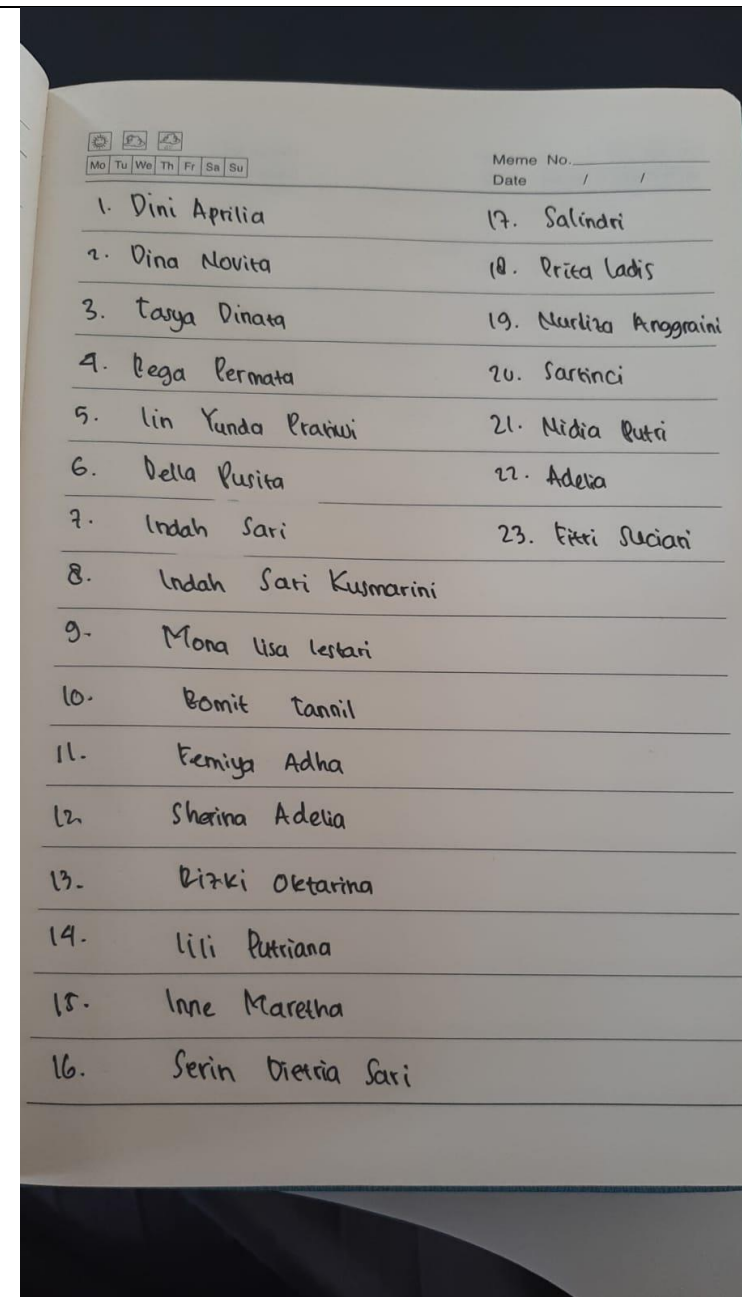 Mo Tu We Th Fr Sa Su
Meme No.
Date / /
1. Dini Aprilia
2. Dina Novita
3. Tasya Dinata
4. Rega Permata
5. Iin Yunda Pratiwi
6. Della Pusita
7. Indah Sari
8. Indah Sari Kusmarini
9. Mona Lisa Lestari
10. Romit Tannil
11. Femiya Adha
12. Sherina Adelia
13. Rizki Oktarina
14. Lili Putriana
15. Inne Maretha
16. Serin Dietria Sari
17. Salindri
18. Prita Ladis
19. Nurliza Anggraini
20. Sartinci
21. Nidia Putri
22. Adelia
23. Fitri Suciari